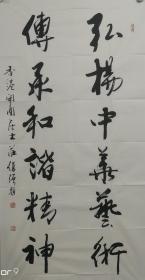 弘揚中華藝術
傳承和諧精神